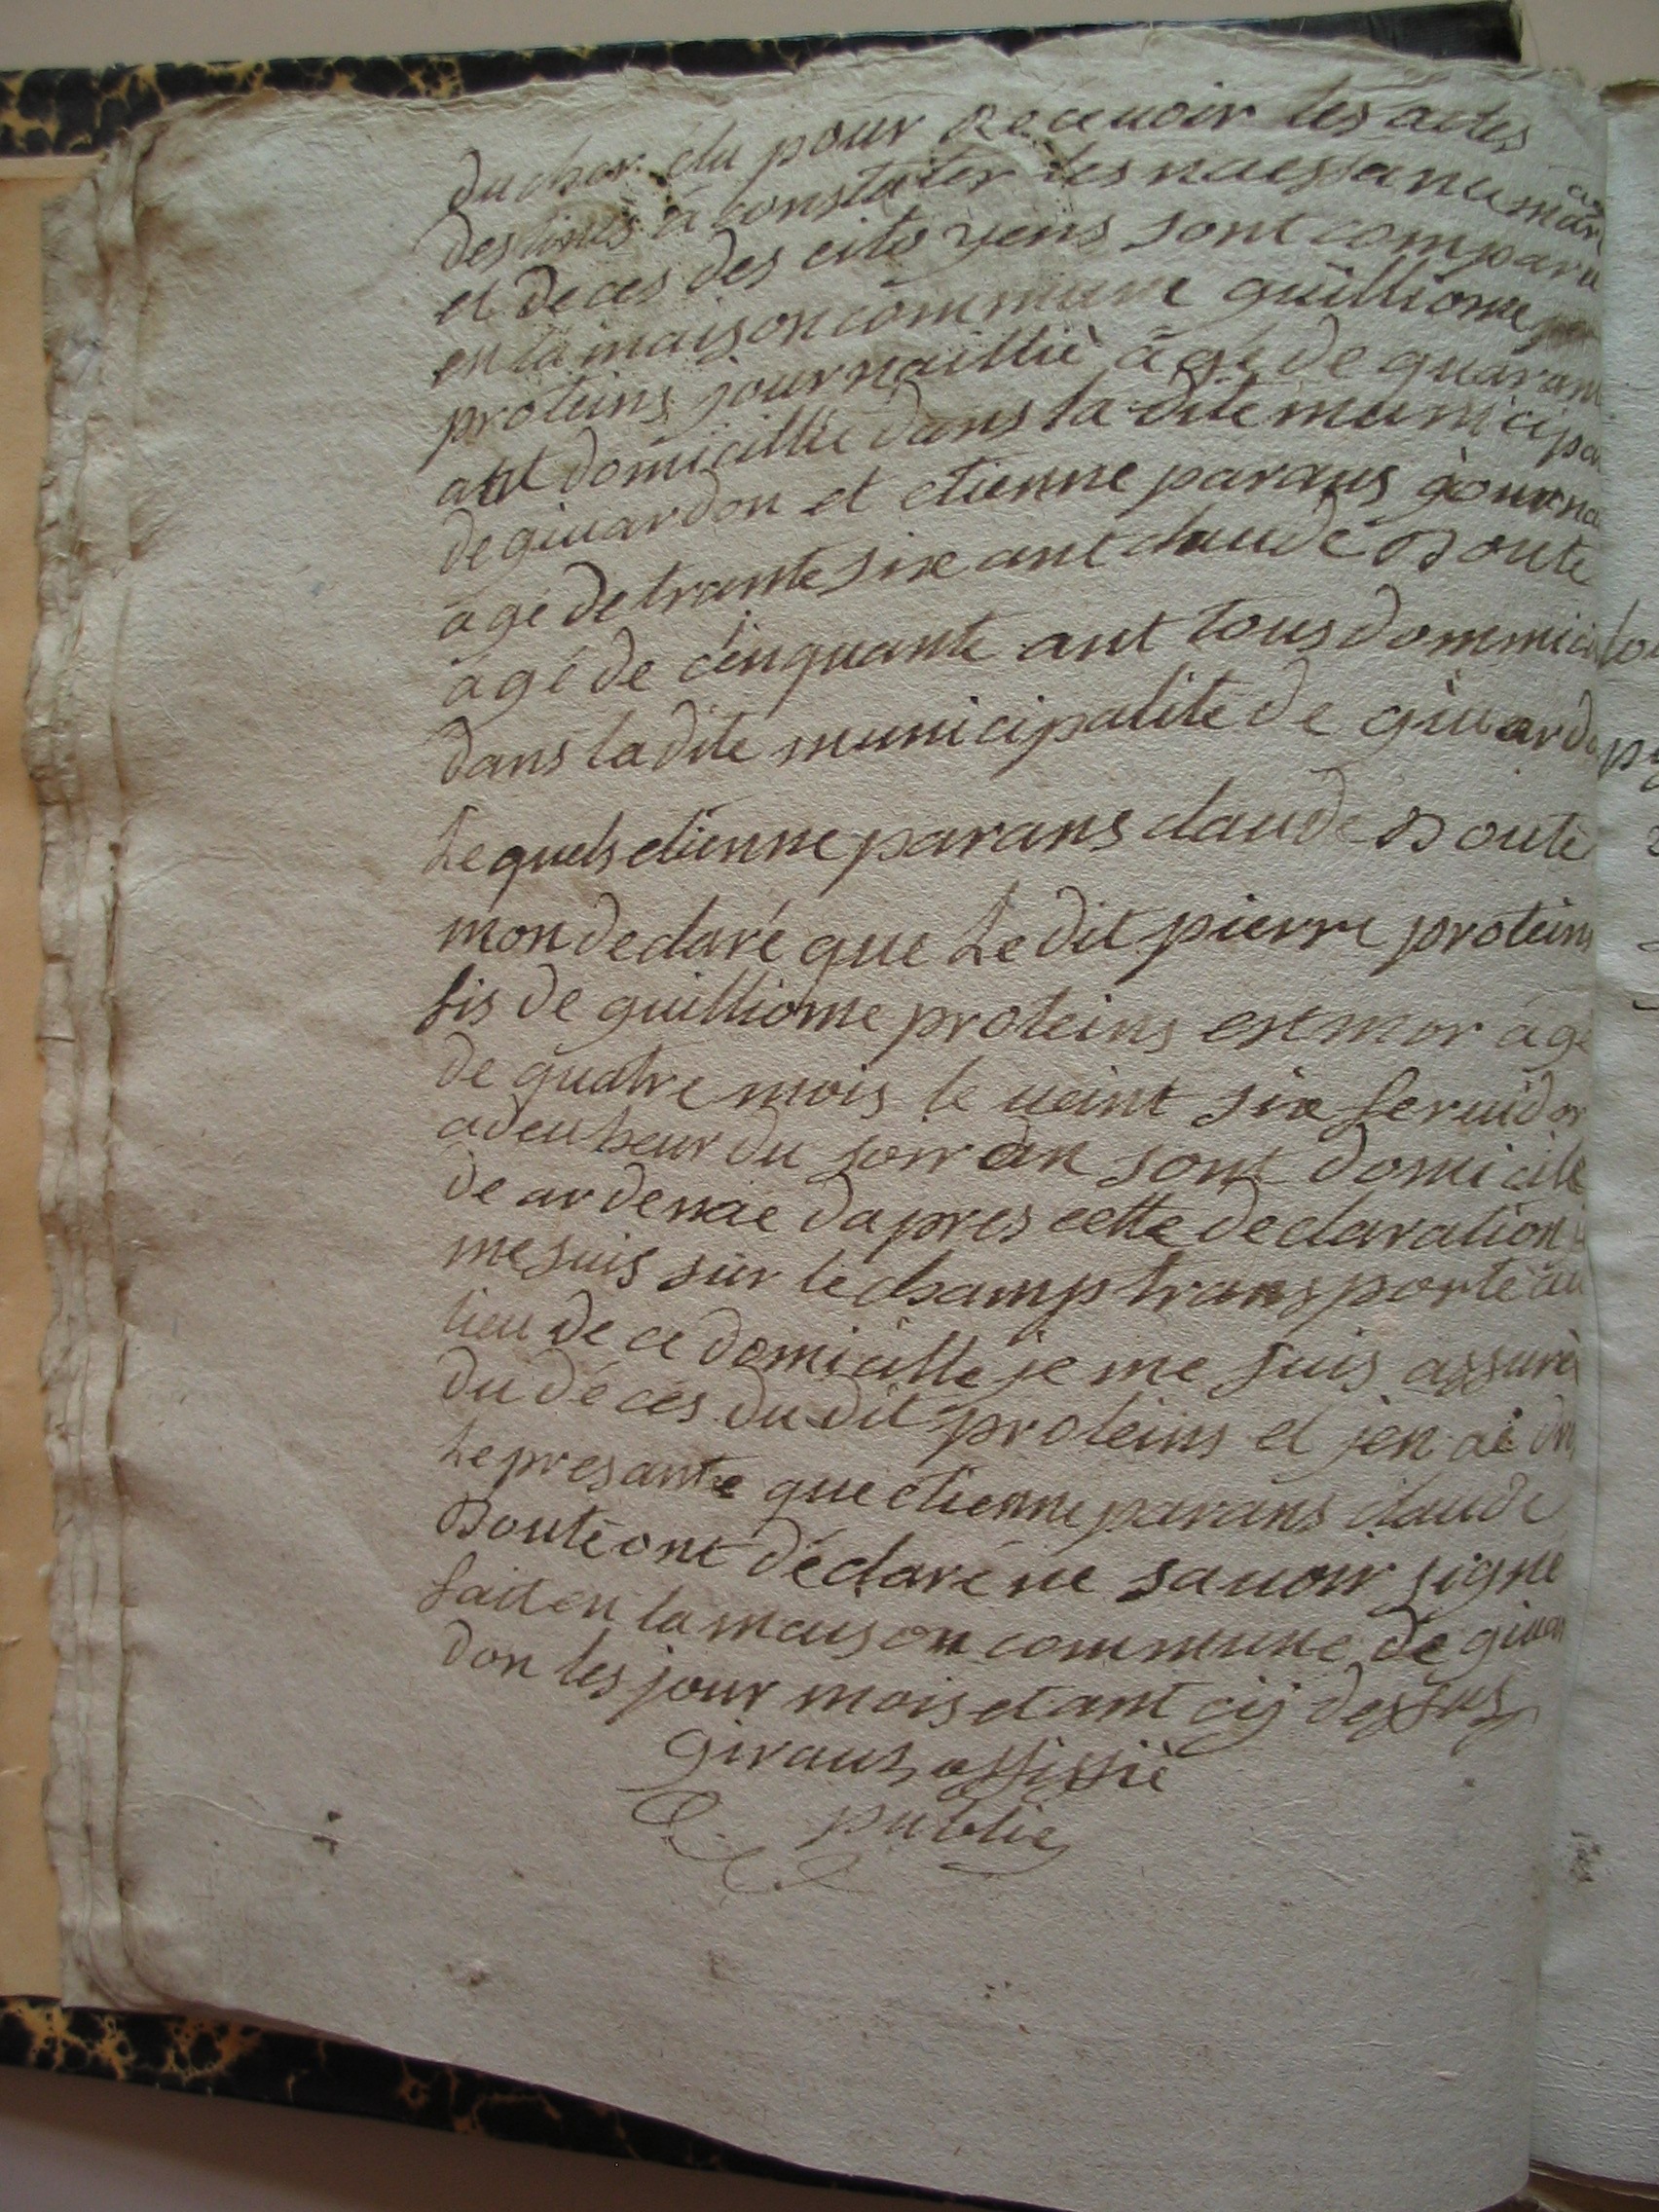 du cher elu pour recevoir les actes
destinés à constater les naessance mar
et deces des citoyens sont comparu
en la maison commune guilliome
proteins journaillié àgé de quarant
ant domicillié dans la dite municipa
de givardon et etienne parans journa
agé de trante six ant claude Bouté
agé de cinquante ant tous dommici
dans ladite municipalite de givardo
Lequels etienne parans claude Bouté
mon declaré que Le dit pierre proteins
fis de guilliome proteins est mor agé
de quatre mois le veint six fervidor
a deu heur du soir dan sont domicile
de ardenae dapres cette declaration j
me suis sur le champ transporte au
lieu de ce domicille je me suis assuré
du déces du dit proteins et jen ai dr
Le presante que etienne parans claude
Bouté ont déclaré ne savoir signe
fait en la maison commune de givar
don les jour mois et ant cij dessus
Giraut, offissié
public